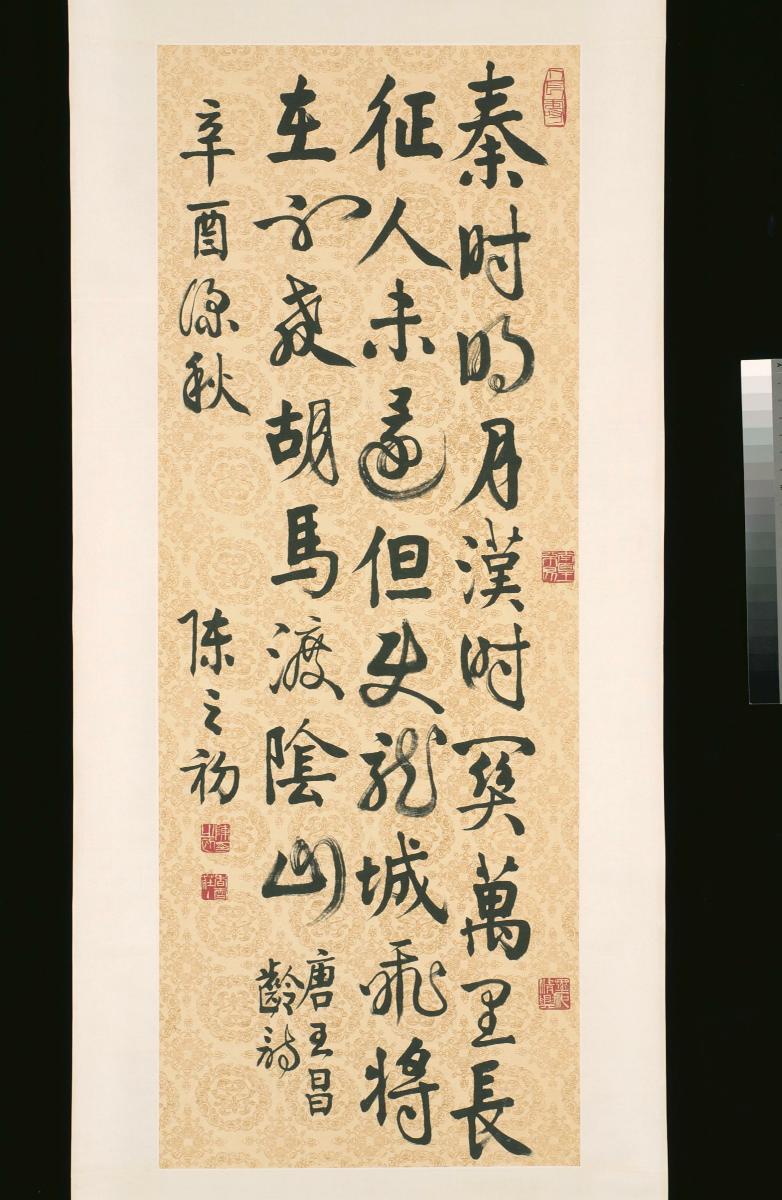 秦时明月漢时關萬里長
征人未還但使龍城飛將
在不教胡馬渡陰山
唐王昌
齡詩
辛酉深秋
陈之初